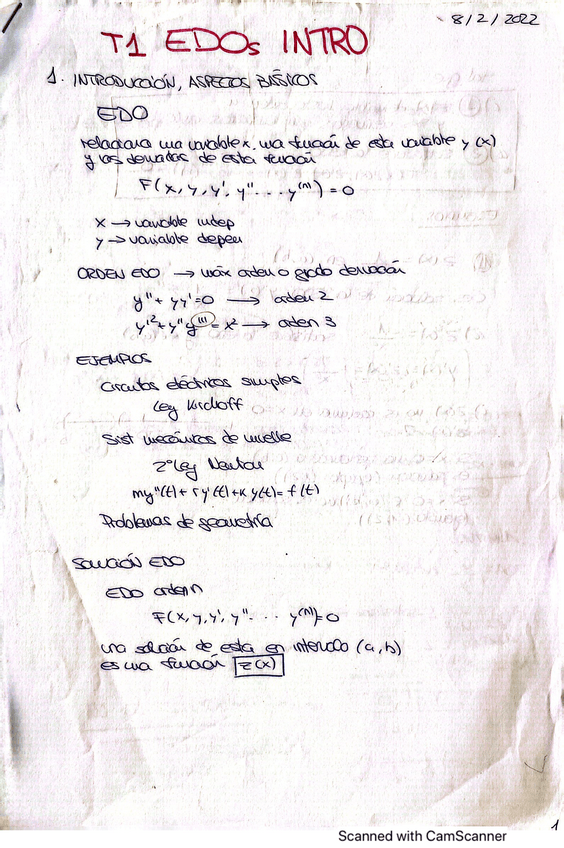 8/2/2022
T1 EDOs INTRO
1. INTRODUCCIÓN, ASPECTOS BÁSICOS
EDO
relaciona una variable x, una función de esta variable y(x)
y las derivadas de esta función
F(x, y, y', y'' ... y^(n)) = 0
x → variable indep
y → variable depen
ORDEN EDO → máx orden o grado derivación
y'' + yy' = 0 → orden 2
y'² + y'' y''' = x² → orden 3
EJEMPLOS
Circuitos eléctricos simples
Ley Kirchoff
Sist mecánicos de muelle
2ª Ley Newton
my''(t) + r y'(t) + k y(t) = f(t)
Problemas de geometría
SOLUCIÓN EDO
EDO orden n
F(x, y, y', y'' ... y^(n)) = 0
una solución de esta en intervalo (a, b)
es una función z(x)
1
Scanned with CamScanner